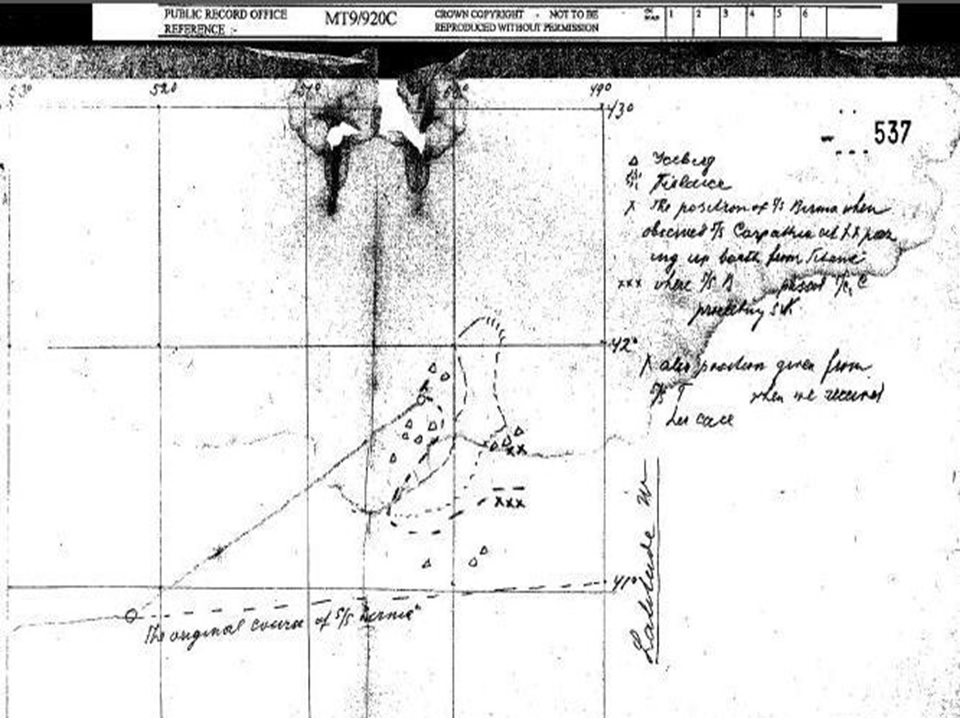 PUBLIC RECORD OFFICE
REFERENCE :-
MT9/920C
CROWN COPYRIGHT - NOT TO BE
REPRODUCED WITHOUT PERMISSION
1 2 3 4 5 6
530 520 510 500 490
430
537
Iceberg
Fieldice
X The position of S/S Birma when
observed S/S Carpathia at XX
ing up boats from Titanic
xxx where S/S B passed S/S C
42°
X also position given from
S/S T when we received
her
xx
xxx
Latitude N
41°
The original course of S/S "Birma"